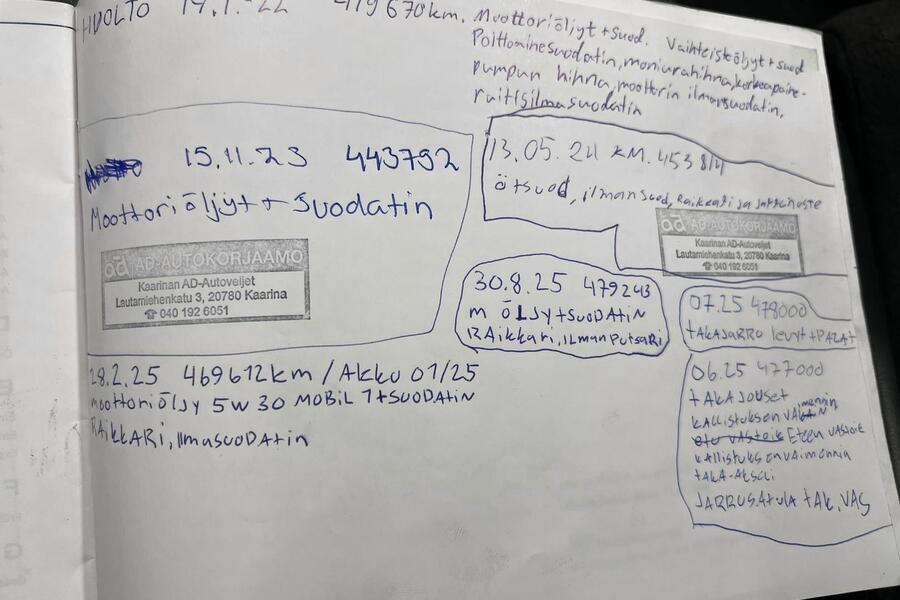 HUOLTO 14.1.22 419670km. Moottoriöljyt + suod. Vaihteistöljyt + suod
Polttoainesuodatin, moniurahihna, korkeapaine-
pumpun hihna, moottorin ilmansuodatin,
raitisilmasuodatin
15.11.23 443792
Moottoriöljyt + Suodatin
ad AD-AUTOKORJAAMO
Kaarinan AD-Autoveljet
Lautamiehenkatu 3, 20780 Kaarina
☎ 040 192 6051
13.05.24 KM. 453814
ö+suod, ilman suod, Raikkari ja jarruneste
ad AD-AUTOKORJAAMO
Kaarinan AD-Autoveljet
Lautamiehenkatu 3, 20780 Kaarina
☎ 040 192 6051
30.8.25 479243
M ÖLJyt+SUODAtiN
RAikkari, iLMAN PutSARi
07.25 478000
tAKAJARRU levyt + PALAt
28.2.25 469612km / AKKU 01/25
Moottoriöljy 5W30 MOBIL 1+SUODAtiN
RAiKKARi, IlmaSUODAtin
06.25 477000
tAKA JOUSEt
KALLiStuKSEN VAKAN
Eteen VASteet
KALLiStuKSenVAiMeNNiA
tAKA-AKSeLi
JARRUSAtULA tAK. VAS